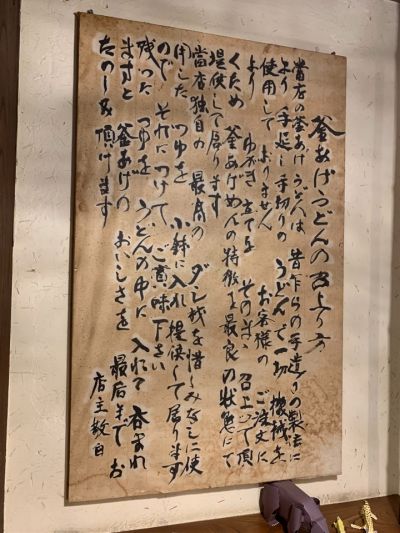 釜あげうどんの召上り方
當店の釜あげうどんは 昔乍らの手造りの製法に
より 手延し手切りの うどんで一切 機械を
使用して おりません お客様の ご注文に
より ゆがき立てを そのまゝ 召上って頂
くため 釜あげめんの特徴を最良の状態にて
提供して居ります
當店独自の 最高の ダシ材を惜しみなしに使
用した つゆを 小鉢に入れ 提供して居ります
ので それにつけて ご賞味下さい
残ったつゆを うどんの中に 入れて 呑まれ
ますと 釜あげの おいしさを 最后まで お
たのしみ頂けます
店主敬白